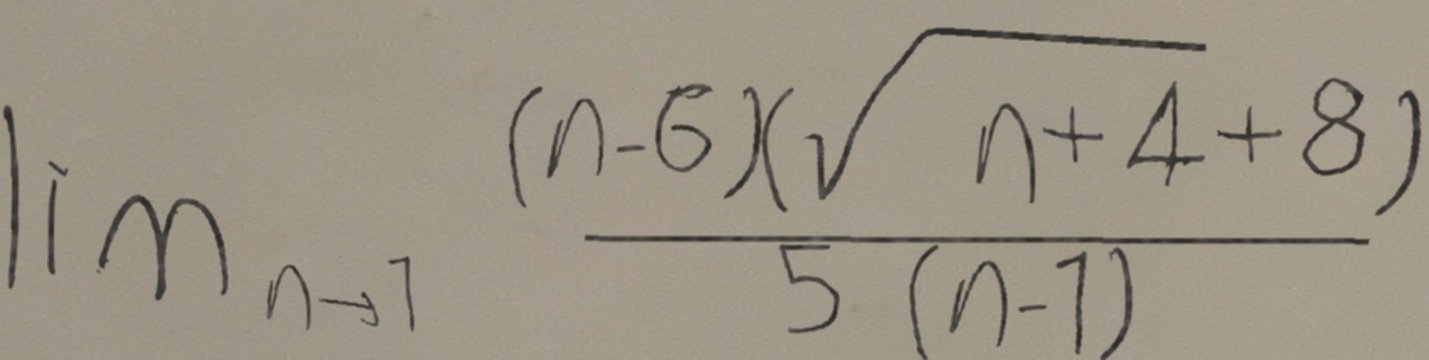 \lim_{n \to 1} \frac{(n-6)(\sqrt{n+4}+8)}{5(n-1)}